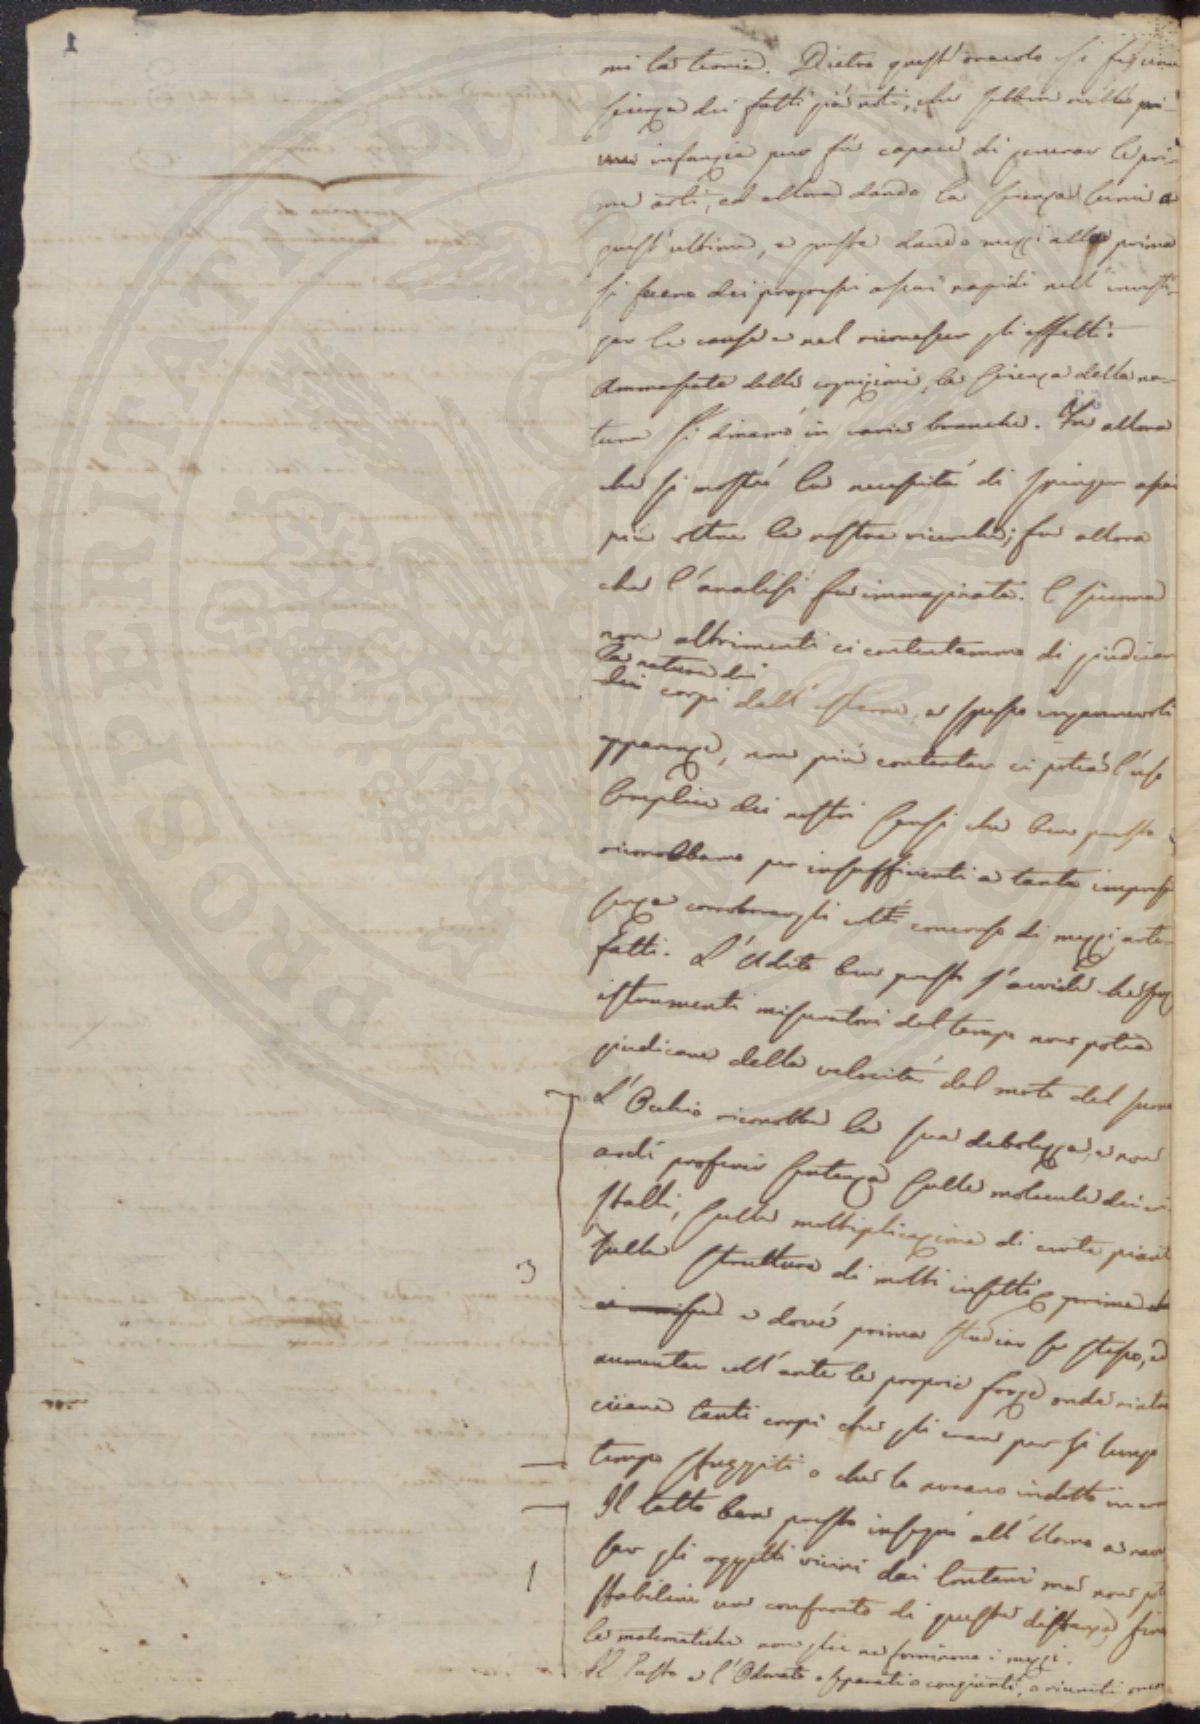 1
mi la teoria. Dietro quest'oracolo si fa
scienza dei fatti già noti, che sebben nella pri-
ma infanzia pure fù capace di generar le pri-
me arti, ed allora dando la scienza lumi a
quest'ultime, e queste dando mezzi alla prima
si fecero dei progressi assai rapidi nell'investi-
gar le cause e nel riconoscer gli effetti.
Ammassate delle cognizioni, la scienza della na-
tura si diramò in varie branche. Fu allora
che si mostrò la necessità di spinger assai
più oltre le nostre ricerche; fu allora
che l'analisi fu immaginata. E siccome
non altrimenti ci contentammo di giudicar
la natura dei
dei corpi dall'esterne, e spesso ingannevoli
apparenze, non più contentar ci potea l'uso
semplice dei nostri sensi che ben presto
riconobbamo per insufficienti a tanta impresa
senza corroborargli col concorso di mezzi arte-
fatti. L'Udito ben presto s'avvide che senza
istrumenti misuratori del tempo non potea
giudicare della velocità del moto del suono
L'Occhio riconobbe la sua debolezza, e non
ardì proferir sentenza sulle molecole dei cri
stalli, sulla moltiplicazione di certe piante
sulla struttura di molti insetti, prima
e dové prima studiar se stesso, ed
aumentar coll'arte le proprie forze onde rintra
cciare tanti corpi che gli erano per sì lungo
tempo sfuggiti o che lo aveano indotto in
3
Il tatto ben presto insegnò all'Uomo a
sar gli oggetti vicini dai lontani ma non poté
stabilire un confronto di queste distanze, finché
1
le matematiche non glie ne fornirono i mezzi.
Il Gusto e l'Odorato o separati o congiunti, o riuniti